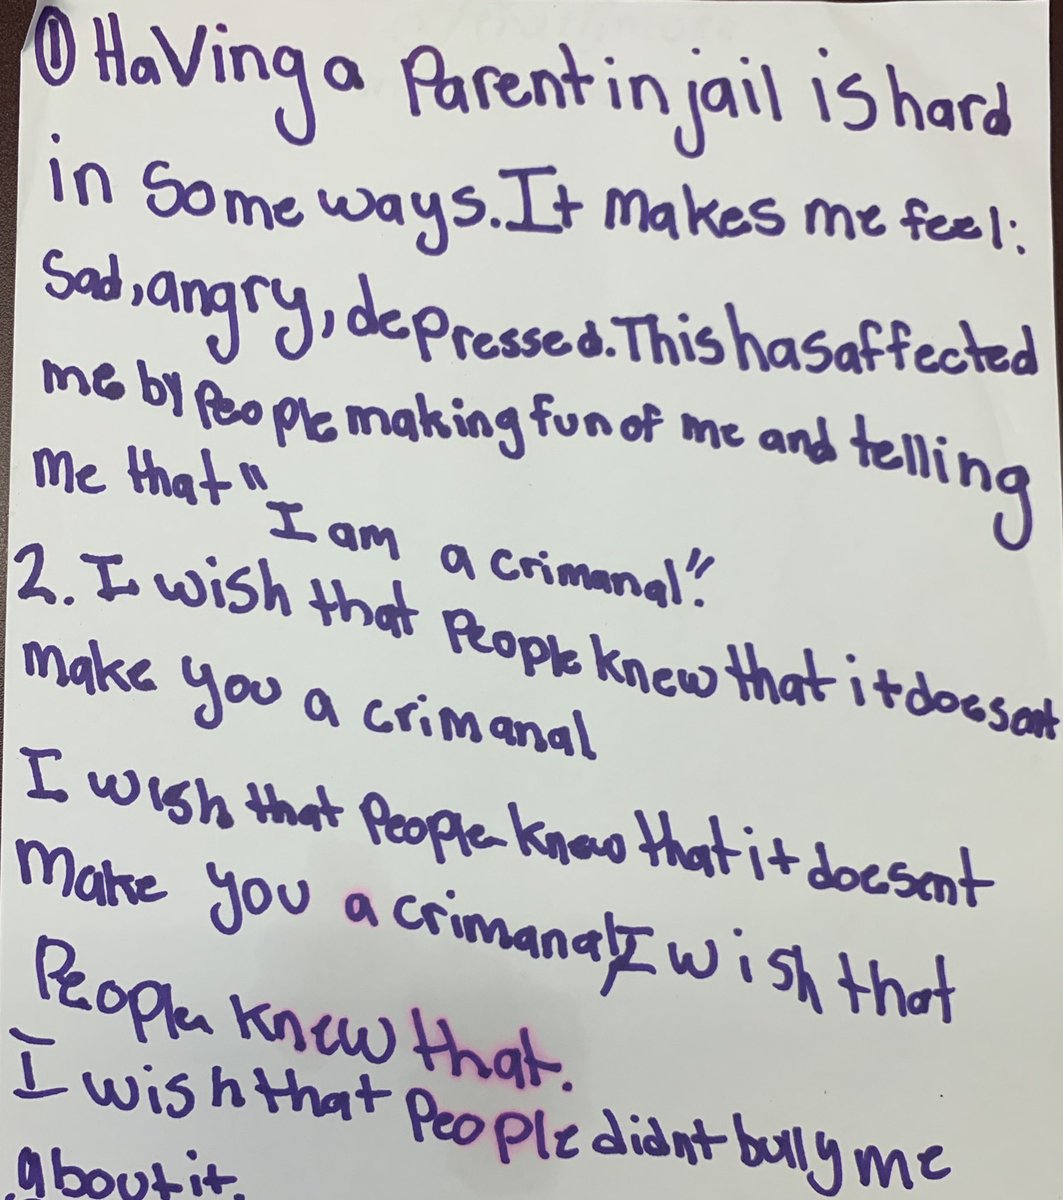 ① Having a Parent in jail is hard
in some ways. It makes me feel:
Sad, angry, depressed. This has affected
me by People making fun of me and telling
me that "I am a crimanal".
2. I wish that People knew that it doesent
make you a crimanal
I wish that People know that it doesent
make you a crimanal, I wish that
People knew that.
I wish that People didnt bully me
about it.